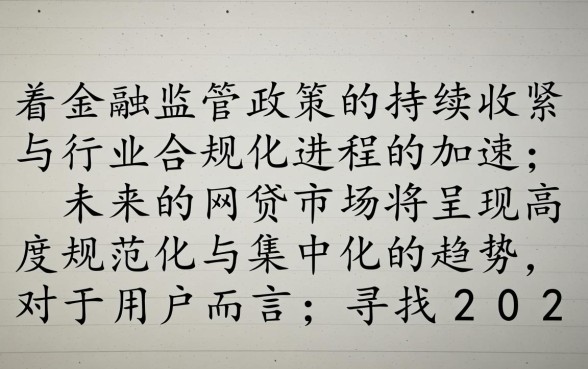 着金融监管政策的持续收紧
与行业合规化进程的加速；
未来的网贷市场将呈现高
度规范化与集中化的趋势，
对于用户而言；寻找２０２